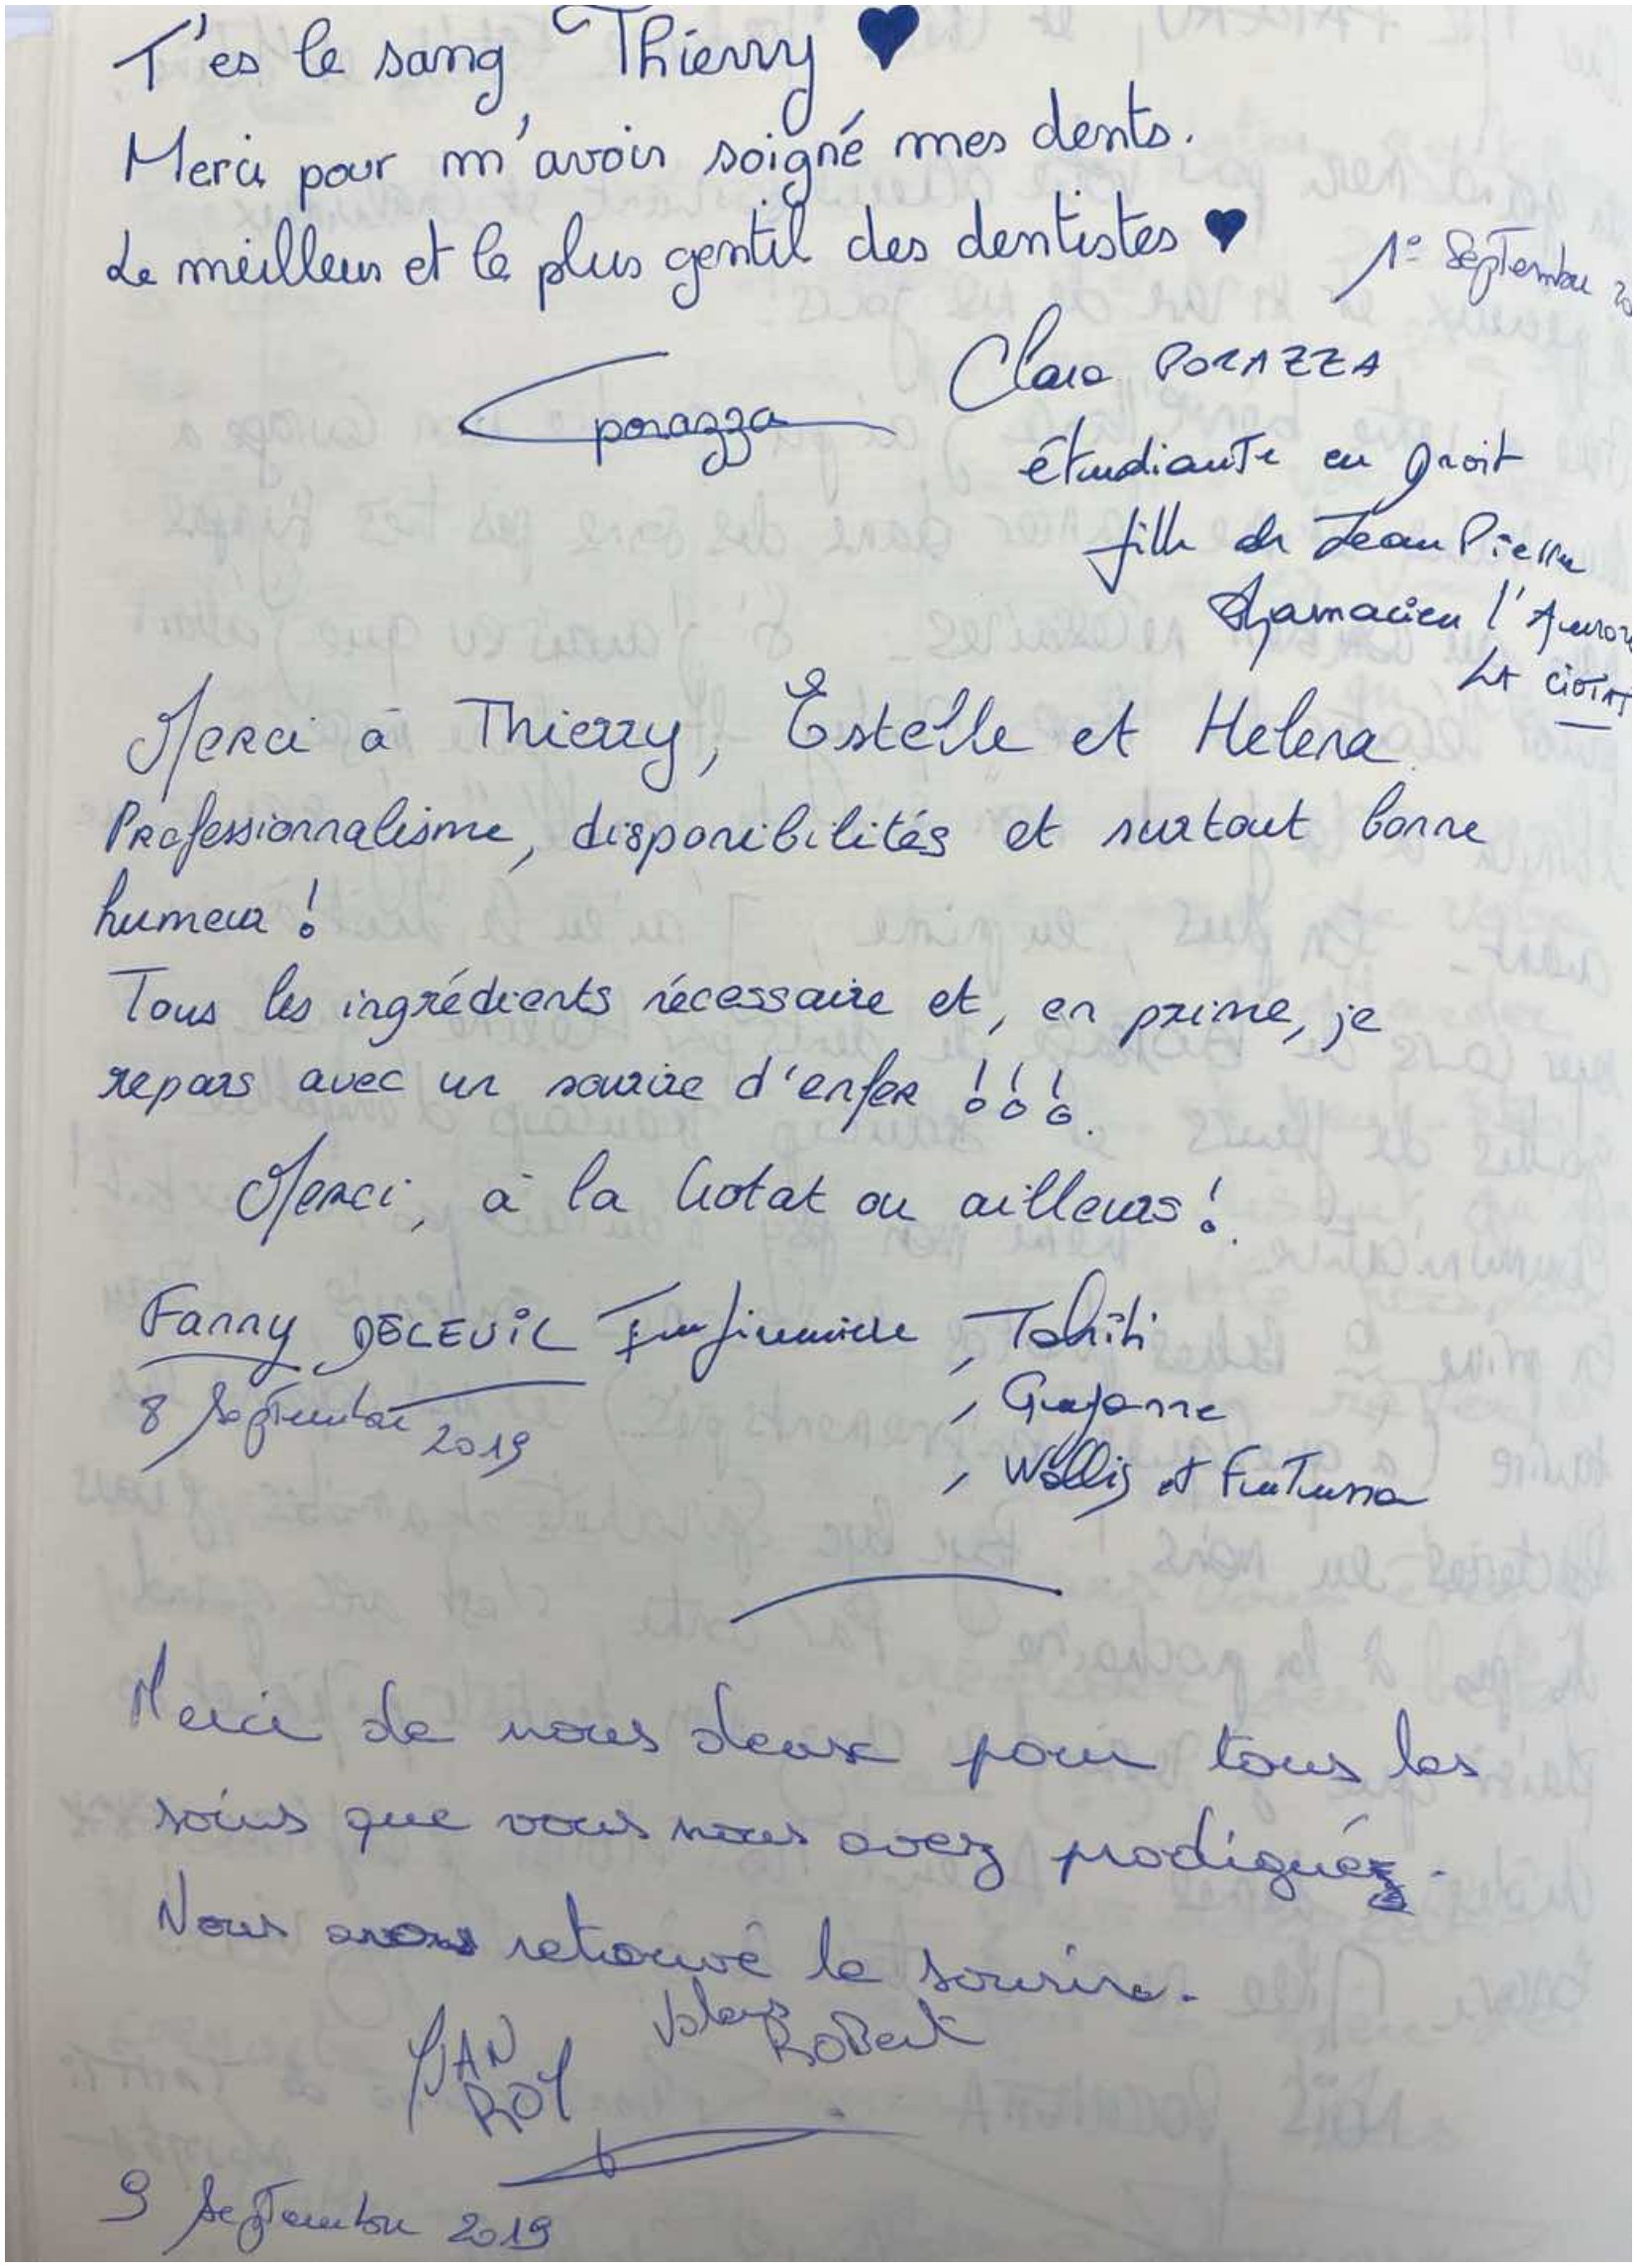 T'es le sang Thierry ♥
Merci pour m'avoir soigné mes dents.
Le meilleur et le plus gentil des dentistes ♥
1° Septembre
Cporazza
Clara PORAZZA
étudiante en Droit
fille de Jean Pierre
Pharmacien l'Aurore
LA CIOTAT
Merci à Thierry, Estelle et Helena.
Professionnalisme, disponibilités et surtout bonne
humeur !
Tous les ingrédients nécessaire et, en prime, je
repars avec un sourire d'enfer !!!
Merci, à la Ciotat ou ailleurs !
Fanny DELEUIL Infirmière, Tahiti
, Guyanne
8 Septembre 2019
, Wallis et Futunna
Merci de nous deux pour tous les
soins que vous nous avez prodigués.
Nous avons retrouvé le sourire.
ROBERT
ROY
9 Septembre 2019